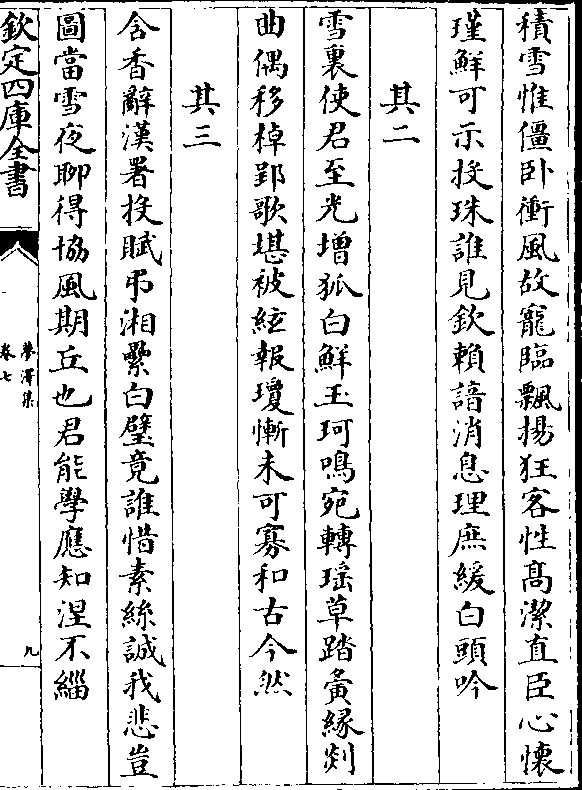 積雪惟僵卧衝風故寵臨飄揚狂客性髙潔直臣心懷
瑾鮮可示投珠誰見欽頼諳消息理庶緩白頭吟
其二
雪裏使君至光增狐白鮮玉珂鳴宛轉瑶草踏夤緣剡
曲偶移棹郢歌堪被絃報瓊慚未可寡和古今然
其三
含香辭漢署投賦弔湘纍白璧竟誰惜素絲誠我悲豈
圖當雪夜聊得協風期丘也君能學應知湼不緇
欽定四庫全書
夢澤集
卷七
九